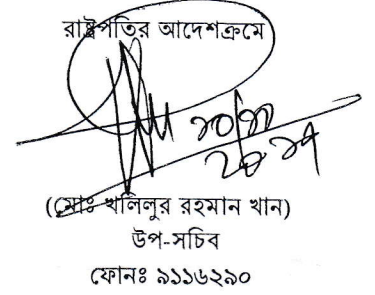 রাষ্ট্রপতির আদেশক্রমে
((মোঃ খলিলুর রহমান খান)
উপ-সচিব
ফোনঃ ৯১১৬২৯০